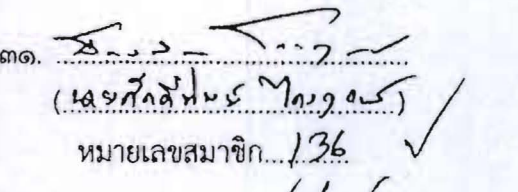 ๓๑.
(นายศักดิ์ทิพย์ ไกรฤกษ์)
หมายเลขสมาชิก 136